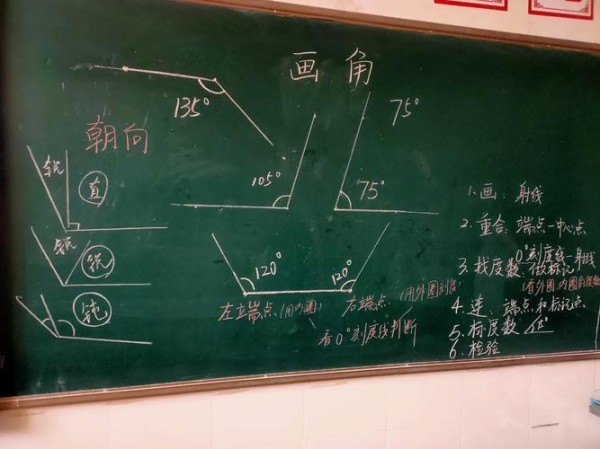 画角
135°
朝向
105°
75°
75°
锐
直
锐
锐
钝
120°
120°
左端点(用内圈)
右端点(用外圈刻度)
看0°刻度线判断
1.画:射线
2.重合:端点-中心点
0°刻度线-射线
3.找度数,做标记
(看外圈、内圈
4.连:端点和标记点
5.标度数
6.检验